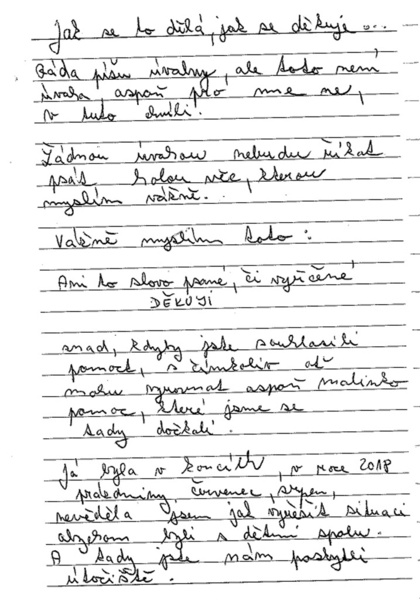 Jak se to dělá, jak se děkuje...
Ráda píšu úvahy, ale toto není
úvaha aspoň pro mne ne,
v tuto chvíli.
Žádnou úvahou nebudu říkat
psát holou věc, kterou
myslím vážně.
Vážně myslím toto:
Ani to slovo psané, či vyřčené
DĚKUJI
snad, kdyby jste souhlasili
pomoct, s čímkoliv ať
mohu vyrovnat aspoň malinko
pomoc, které jsme se
tady dočkali.
Já byla v koncích, v roce 2018
prázdniny, červenec, srpen,
nevěděla jsem jak vyřešit situaci
abychom byli s dětmi spolu.
A tady jste nám poskytli
útočiště.